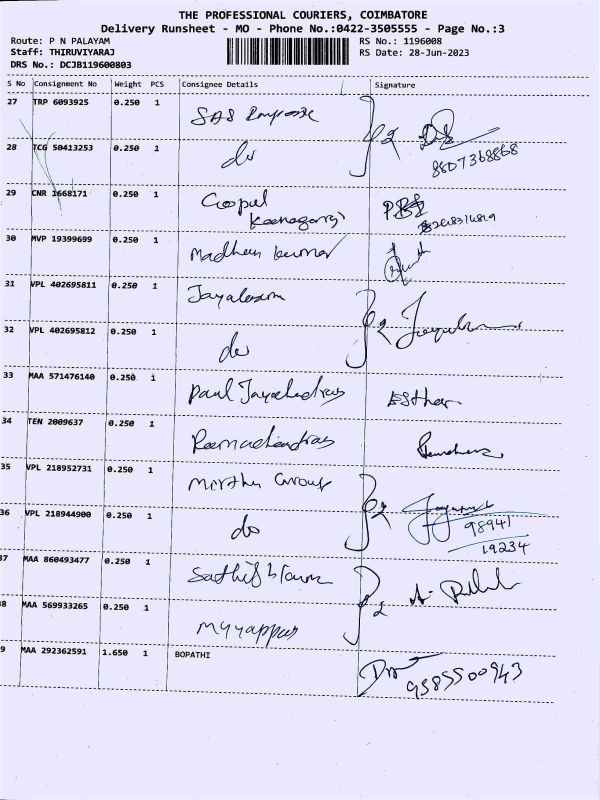 THE PROFESSIONAL COURIERS, COIMBATORE
Delivery Runsheet - MO - Phone No.:0422-3505555 - Page No.:3
Route: P N PALAYAM RS No.: 1196008
Staff: THIRUVIYARAJ RS Date: 28-Jun-2023
DRS No.: DCJB119600803
S No Consignment No Weight PCS Consignee Details Signature
27 TRP 6093925 0.250 1 SAS
28 TCG 50413253 0.250 1 do 2
8807368868
29 CNR 1668171 0.250 1 Gopal
30 MVP 19399699 0.250 1 Madhan kumar
31 VPL 402695811 0.250 1 Jayaleram
32 VPL 402695812 0.250 1 do 2
33 MAA 571476140 0.250 1 Paul Esther.
34 TEN 2009637 0.250 1 Ramachandran
35 VPL 218952731 0.250 1 Group
36 VPL 218944900 0.250 1 do 2
98941
19234
37 MAA 860493477 0.250 1 Sathish
38 MAA 569933265 0.250 1 Myyappan 2
39 MAA 292362591 1.650 1 BOPATHI
9585500943